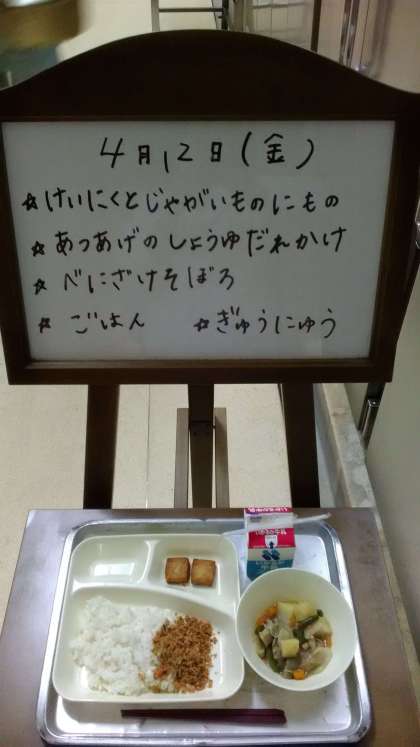 4月12日(金)
☆けいにくとじゃがいものにもの
☆あつあげのしょうゆだれかけ
☆べにざけそぼろ
☆ごはん ☆ぎゅうにゅう